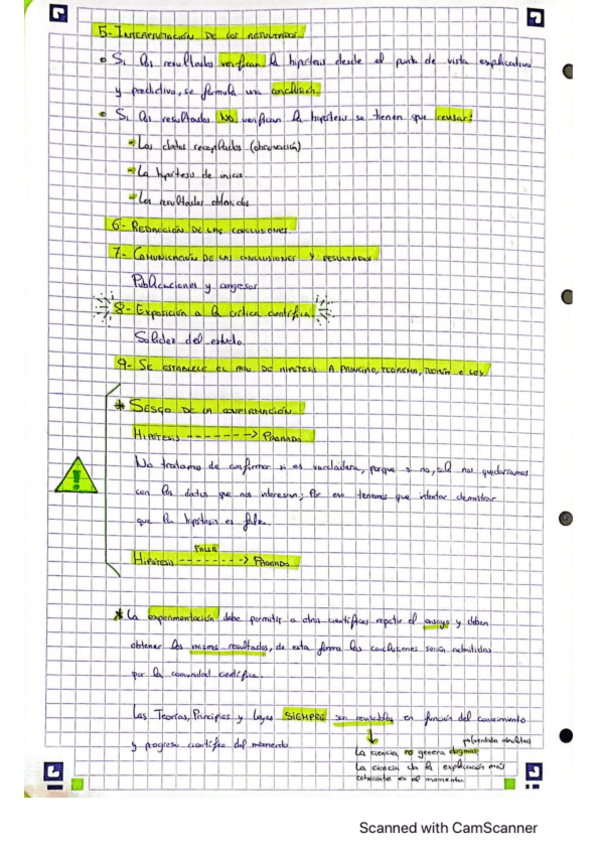 5- INTERPRETACIÓN DE LOS RESULTADOS.
• Si los resultados verifican la hipótesis desde el punto de vista explicativo
y predictivo, se formula una conclusión.
• Si los resultados NO verifican la hipótesis se tienen que revisar:
- Los datos recopilados (observación)
- La hipótesis de inicio.
- Los resultados obtenidos
6- REDACCIÓN DE LAS CONCLUSIONES.
7- COMUNICACIÓN DE LAS CONCLUSIONES Y RESULTADOS
Publicaciones y congresos
8- Exposición a la crítica científica.
Solidez del estudio.
9- SE ESTABLECE EL DE HIPÓTESIS A PRINCIPIO, TEOREMA, TEORÍA O LEY
* SESGO DE LA CONFIRMACIÓN
HIPÓTESIS -------> PROBADO
No tratamos de confirmar si es verdadera, porque si no, solo nos quedaríamos
con los datos que nos interesan; Por eso tenemos que intentar demostrar
que la hipótesis es falsa.
FALSA
HIPÓTESIS -------> PROBADO
* La experimentación debe permitir a otros científicos repetir el ensayo y deben
obtener los mismos resultados, de esta forma las conclusiones serán admitidas
por la comunidad científica.
Las Teorías, Principios y Leyes SIEMPRE son revisables en función del conocimiento
y progreso científico del momento.
absolutas
La ciencia no genera dogmas
La ciencia da la explicación más
coherente en el momento.
Scanned with CamScanner